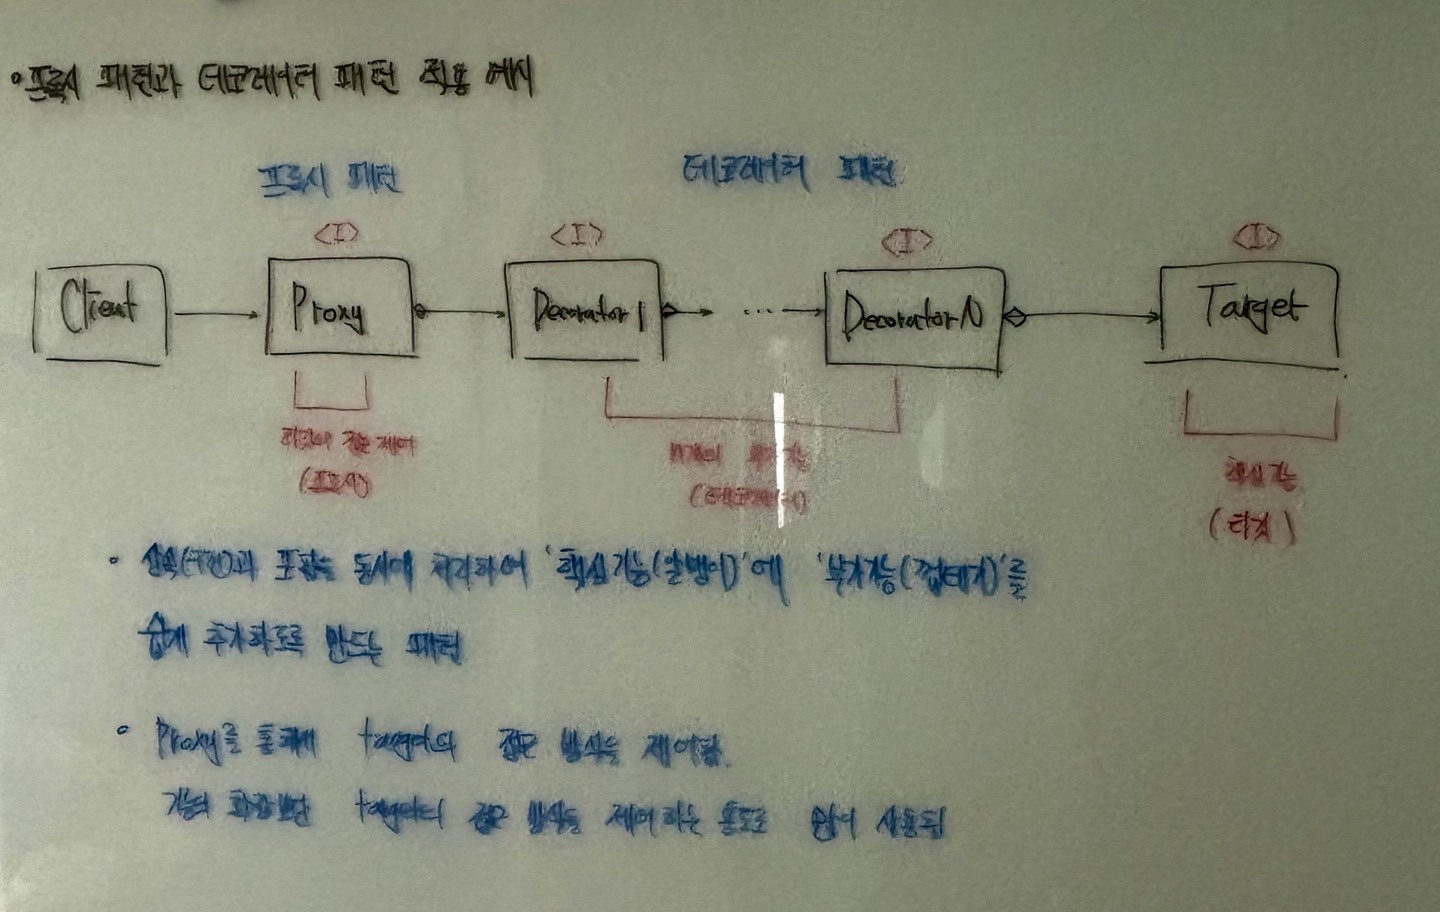 프록시 패턴과 데코레이터 패턴 적용 예시
프록시 패턴 데코레이터 패턴
<I> <I> <I> <I>
Client Proxy Decorator1 ... DecoratorN Target
접근 제어
(프록시)
N개의 부가기능
(데코레이터)
핵심기능
(타깃)
포함을 동시에 '핵심기능(알맹이)'에 '부가기능(껍데기)'를
쉽게 추가하도록 만드는 패턴
Proxy를 통해 target의 접근 방식을 제어함.
기능의 확장보단 target의 접근 방식을 제어하는 용도로 많이 사용됨